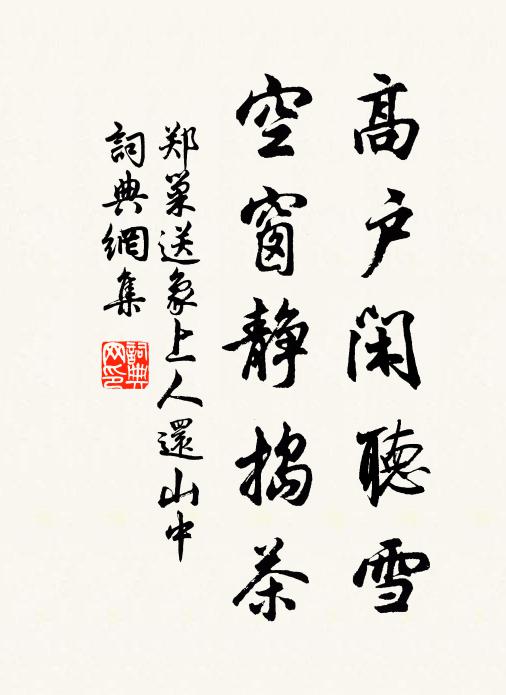 高户闲聽雪
空窗静搗茶
郑巢送象上人還山中
詞典網集
詞典网印